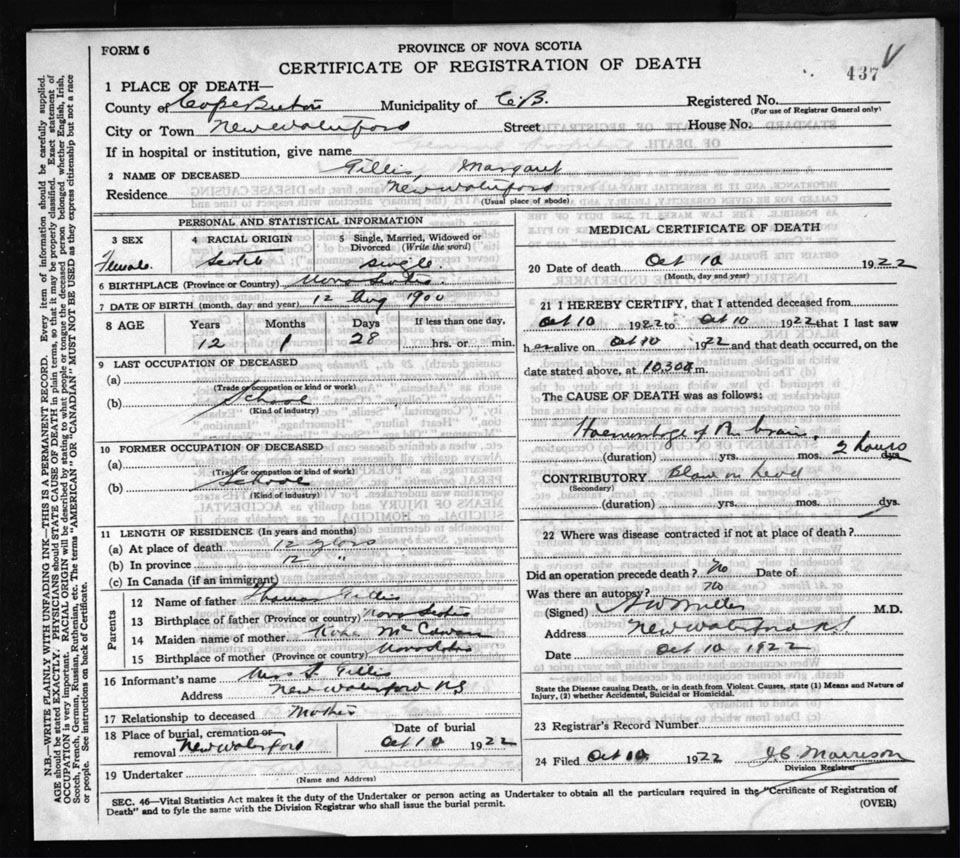 FORM 6
PROVINCE OF NOVA SCOTIA
CERTIFICATE OF REGISTRATION OF DEATH
437
1 PLACE OF DEATH—
County of Cape Breton Municipality of C.B. Registered No.
(For use of Registrar General only)
City or Town New Waterford Street House No.
If in hospital or institution, give name
2 NAME OF DECEASED Gillis, Margaret
Residence New Waterford
(Usual place of abode)
PERSONAL AND STATISTICAL INFORMATION
3 SEX 4 RACIAL ORIGIN 5 Single, Married, Widowed or Divorced (Write the word)
Female. Scotch single.
6 BIRTHPLACE (Province or Country) Nova Scotia.
7 DATE OF BIRTH (month, day and year) 12 Aug 1900
8 AGE Years Months Days If less than one day,
12 1 28 hrs. or min.
9 LAST OCCUPATION OF DECEASED
(a)
(Trade or occupation or kind or work)
(b) School
(Kind of industry)
10 FORMER OCCUPATION OF DECEASED
(a)
(Trade or occupation or kind of work)
(b) School
(Kind of industry)
11 LENGTH OF RESIDENCE (In years and months)
(a) At place of death 12 years
(b) In province 12 "
(c) In Canada (if an immigrant)
Parents
12 Name of father Thomas Gillis
13 Birthplace of father (Province or country) Nova Scotia
14 Maiden name of mother
15 Birthplace of mother (Province or Country) Nova Scotia
16 Informant's name Mrs Gillis
Address New Waterford NS
17 Relationship to deceased Mother
18 Place of burial, cremation or removal New Waterford
Date of burial Oct 10 1922
19 Undertaker
(Name and Address)
MEDICAL CERTIFICATE OF DEATH
20 Date of death Oct 10 1922
(Month, day and year)
21 I HEREBY CERTIFY, that I attended deceased from
Oct 10 1922 to Oct 10 1922 that I last saw
her alive on Oct 10 1922 and that death occurred, on the
date stated above, at 10.30 m.
The CAUSE OF DEATH was as follows:
Haemorrhage of brain.
(duration) yrs. mos. dys. 2 hours
CONTRIBUTORY Blow on head
(Secondary)
(duration) yrs. mos. dys.
22 Where was disease contracted if not at place of death?
Did an operation precede death? No Date of
Was there an autopsy? No
(Signed) Miller M.D.
Address New Waterford NS
Date Oct 10 1922
State the Disease causing Death, or in death from Violent Causes, state (1) Means and Nature of Injury, (2) whether Accidental, Suicidal or Homicidal.
23 Registrar's Record Number
24 Filed Oct 10 1922 Morrison
Division Registrar
SEC. 46—Vital Statistics Act makes it the duty of the Undertaker or person acting as Undertaker to obtain all the particulars required in the "Certificate of Registration of
Death" and to fyle the same with the Division Registrar who shall issue the burial permit. (OVER)
N.B.—WRITE PLAINLY WITH UNFADING INK—THIS IS A PERMANENT RECORD. Every item of information should be carefully supplied.
AGE should be stated EXACTLY. PHYSICIANS should STATE CAUSE OF DEATH in plain terms, so that it may be properly classified. Exact statement of
OCCUPATION is very important. RACIAL ORIGIN will be described by stating to what people or tongue the deceased person belonged whether English, Irish,
Scotch, French, German, Russian, Ruthenian, etc. The terms "AMERICAN" OR "CANADIAN" MUST NOT BE USED as they express citizenship but not a race
or people. See instructions on back of Certificate.